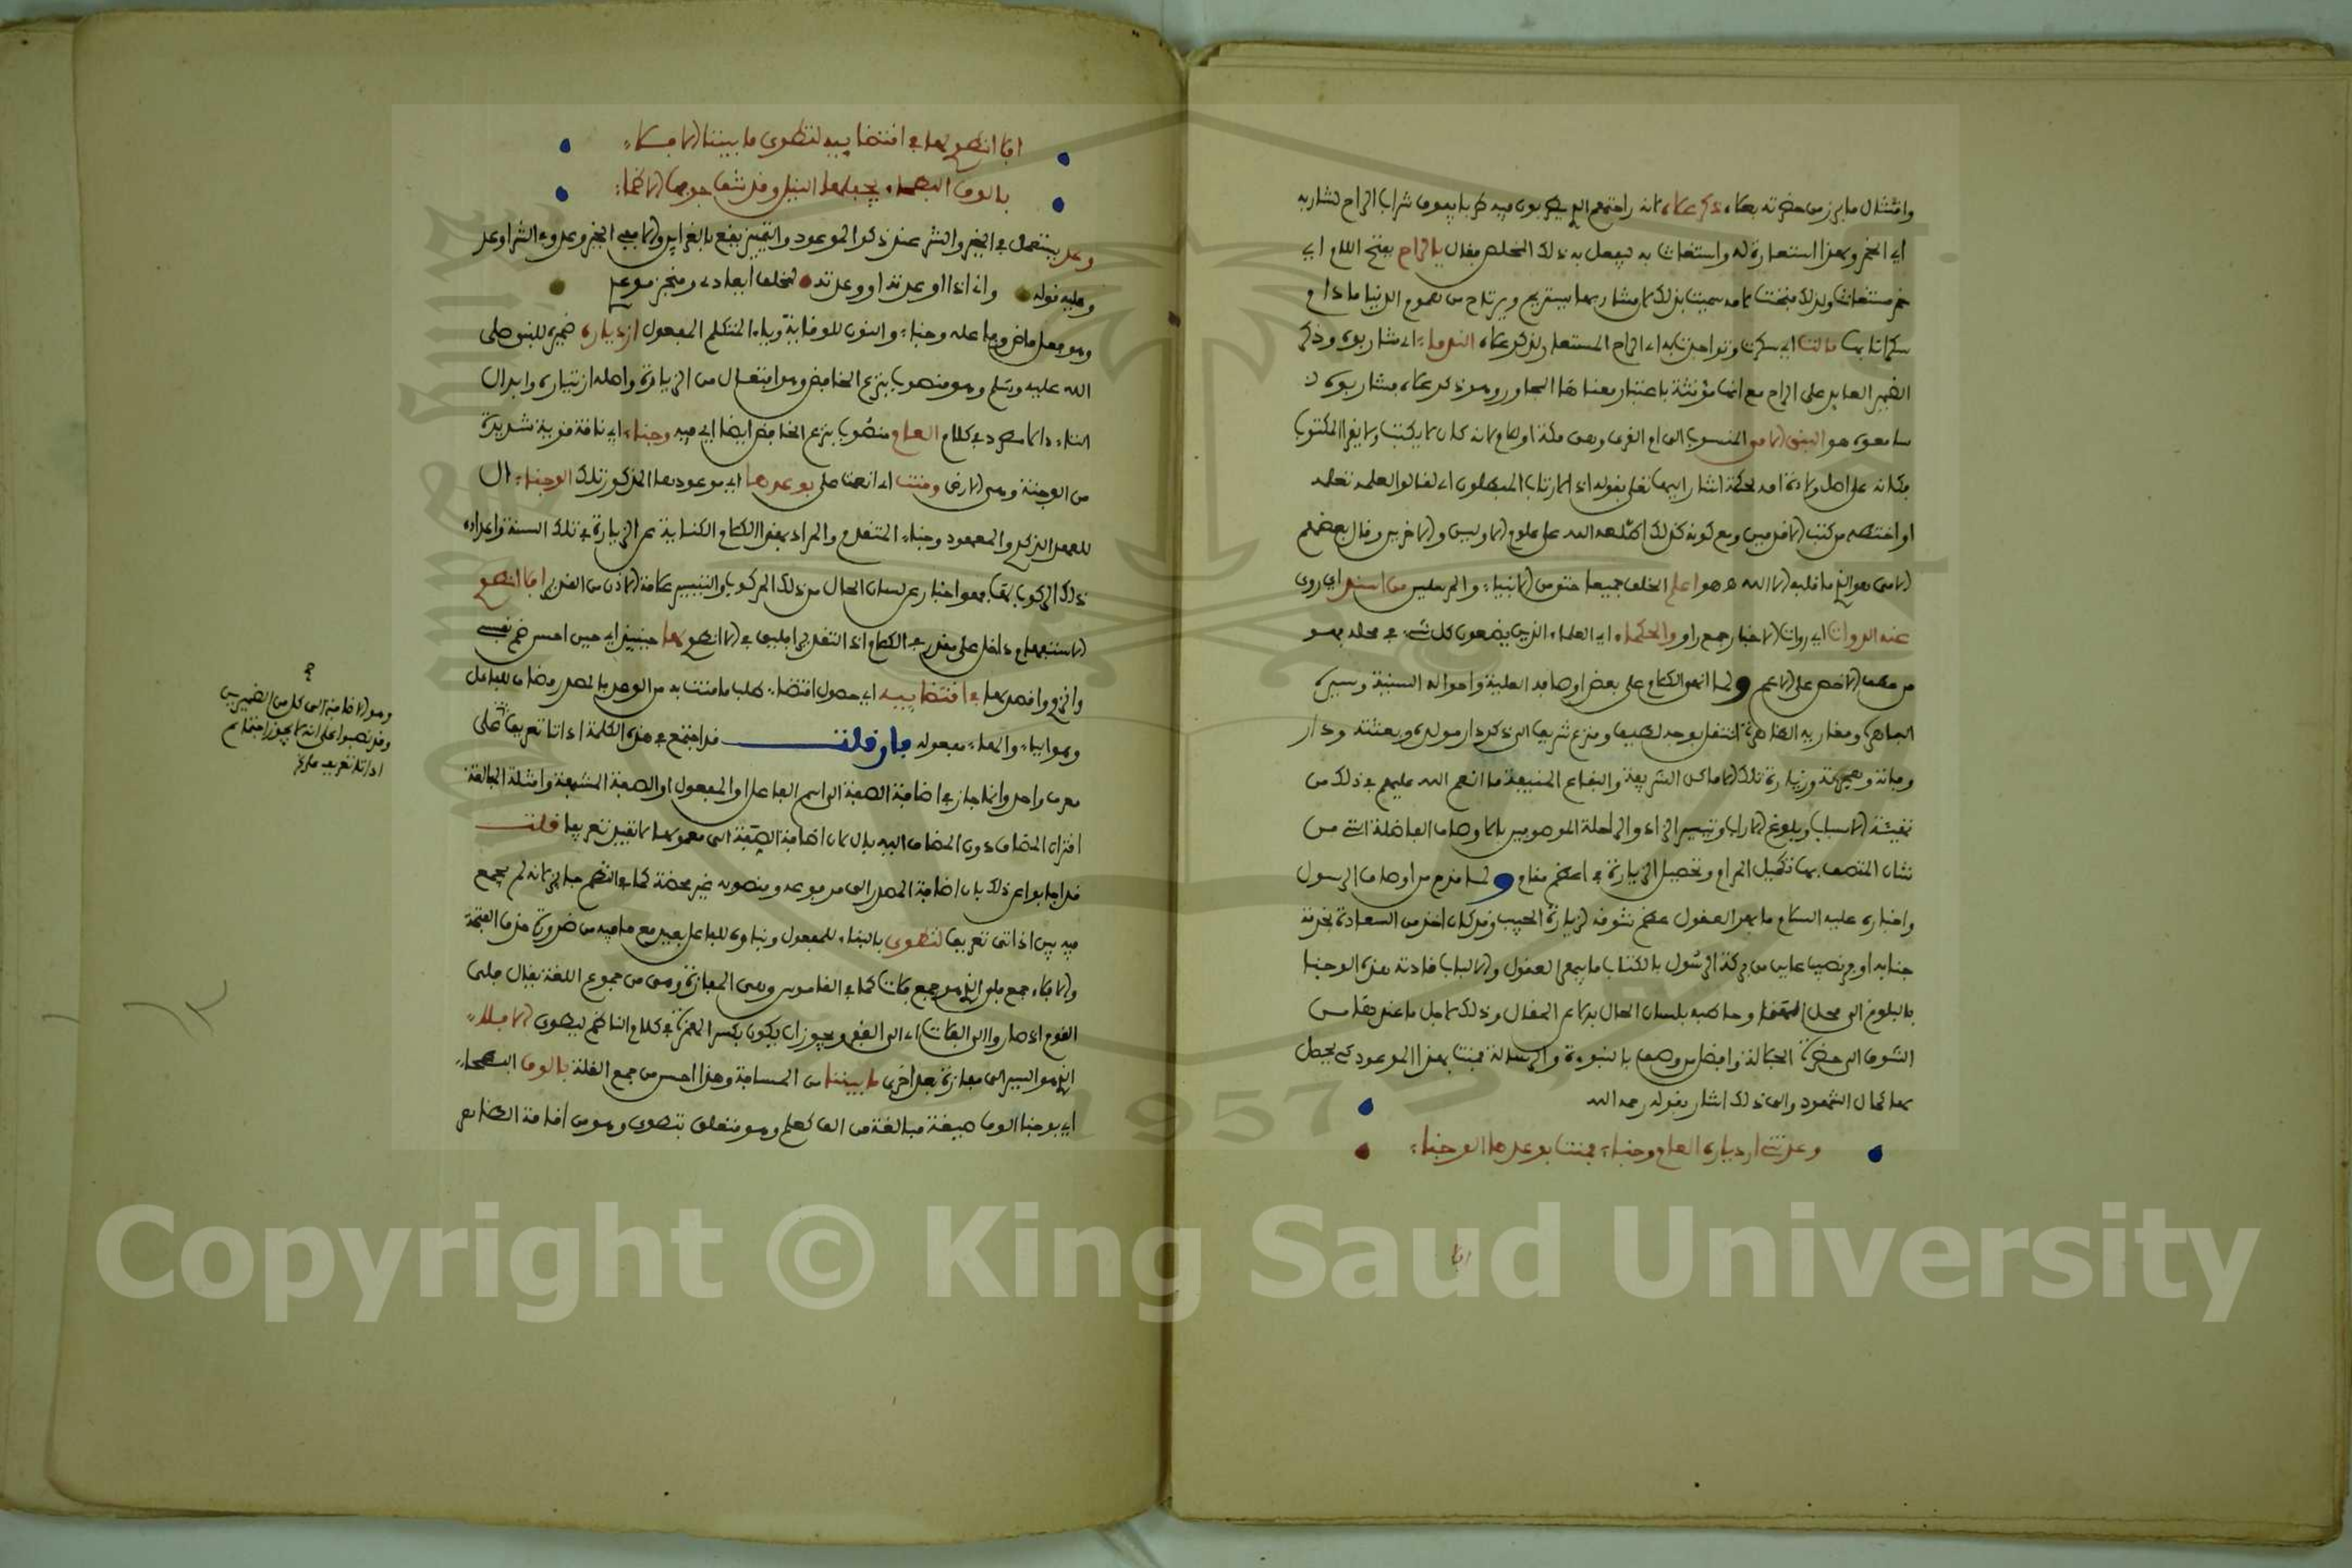 وامتثال ما برز من حضرته بهاء ذكر علاه لانه راجتمع الذ يطربون فيه طربا يفوق شراب الراح لشاربه
اي الخمر وبهذا استعارة له واستغاث به ليفعل به ذلك المخلص فقال يا لراح بفتح اللام اي
خمر مستغاث ولذلك فتحت لامه سميت بذلك لان شاربها يستريح ويرتاح من هموم الدنيا ما دام
سكرانا بها مالت اي سكرت وتواجدت به اي الراح المستعار لذكر علاه الندماء اي شاربوه وذكر
الضمير العايد على الراح مع انها مؤنثة باعتبار معناها المجاور وهو ذكر علاه فشاربوه
سامعوه هو النبي الامي المنسوب الى ام القرى وهي مكة او لام لانه كان لا يكتب ولا يقرا المكتوب
فكانه على اصل ولادة امه لحكمة اشار اليها تعلى بقوله اذا لارتاب المبطلون اي لقالوا لعله تعلمه
او اختطه من كتب الاقدمين ومع كونه كذلك اطلعه الله على علوم الاولين والاخرين وقال بعضهم
الامي هو الذ ما قلبه الا الله هو اعلم الخلق جميعا حتى من الانبياء والمرسلين من اسند اي روى
عنه الروات اي روات الاخبار جمع راو والحكماء اي العلماء الذين يضعون كل شيء في محله فهو
من عطف الاخص على الاعم ولما انهى الكلام على بعض اوصافه العلية واحواله السنية وسيره
الباهرة ومغازيه الظاهرة انتقل بوجه لطيف ومنزع شريف الى ذكر دار مولده وبعثته ودار
وفاته وهجرته وزيارة تلك الاماكن الشريفة والبقاع المنيفة ما انعم الله عليهم في ذلك من
تهيئة الاسباب وبلوغ الاراب وتيسير الزاد والراحلة الموصوفين بالاوصاف الفاضلة التي من
شان المتصف بها تكميل المرام وتحصيل الزيارة في اعظم مقام ولما فدم من اوصاف الرسول
واخباره عليه السلام ما بهر العقول عظم تشوقه لزيارة الحبيب وقد كان اخذ من السعادة بخدمة
جنابه اوفر نصيب عاين من بركة الرسول بالكتاب ما يبهر العقول والالباب فادته هذه الوجنا
بالبلوغ الى محل المقصد وخاطبه بلسان الحال بدلا عن المقال وذلك لاجل ما عندها من
الشوق الى حضرة الجلالة وافضل من وصف بالنبوءة والرسالة فمنت بهذا الموعود كي يحصل
بها كمال الشهود والى ذلك اشار بقوله رحمه الله
وعدتني ازدياره العام وجناء ومنت بوعدها الوجناء
افا
افا انطوي لها في اقتضائيه لتطوى ما بيننا الافلاء
بالوف البطحاء يجفلها النيل وقد شف جوفها الاظماء
وعد يستعمل في الخير والشر عند ذكر الموعود والتمييز يقع بالقراين والا ففي الخير وعد وفي الشر اوعد
وعليه قوله واني اذا اوعدته او وعدته لمخلف ايعادي ومنجز موعدي
وهو فعل ماض وفاعله وجناء والنون للوقاية وياء المتكلم المفعول ازدياره ضميره للنبي صلى
الله عليه وسلم وهو منصوب بنزع الخافض وهو افتعال من الزيارة واصله ازتياره وابدال
التاء دالا مطرد في كلام العام منصوب بنزع الخافض ايضا اي فيه وجناء اي ناقة قوية شديدة
من الوجنة وهي الارض ومنت اي انعمت علي بوعدها اي موعودها المذكور تلك الوجناء ال
للعهد الذكري والمعهود وجناء المتقدم والمراد بهذا الكلام الكناية عن الزيارة في تلك السنة واعداده
ذلك المركوب لها فهو اخبار عن لسان الحال من ذلك المركوب والتيسير علامة الاذن من القدير افا انطوي
الاستفهام داخل على مقدر في الكلام اذ التقدير افليق في الا انطوي لها حينئذ اي حين احسن ضم نفسي
وافرح واقصر بها في اقتضائيه اي حصول اقتضاء طلب ما منت به من الوعد بالمصدر مضاف للفاعل
وهو الياء والهاء مفعوله فان قلت قد اجتمع في هذه الكلمة اداتا تعريف على
معرف واحد وانما جاز في اضافة الصفة الى اسم الفاعل او المفعول او الصفة المشبهة وامثلة المبالغة
اقتران المضاف دون المضاف اليه بال لان اضافة الصفة الى معمولها لا تفيد تعريفها قلت
قد اجابوا عن ذلك بان اضافة المصدر الى مرفوعه ومنصوبه غير محضة كما في النظم فلذلك لم يجمع
فيه بين اداتي تعريف لتطوى بالبناء للمفعول وبناؤه للفاعل بعيد مع ما فيه من ضرورة حذف الفتحة
والافلاء جمع فلو الذ هو جمع فلات كما في القاموس وهي المفازة وهي من مجموع اللغة يقال فلى
القوم اذا صاروا الى الفلات اي الى القفر ويجوز ان يكون بكسر الهمزة في كلام الناظم ليطوى الافلاء
الذ هو السير الى مفازة بعد اخرى ما بيننا من المسافة وهذا احسن من جمع القلة بالوف البطحاء
اي بوجناء الوف صيغة مبالغة من الف كعلم وهو متعلق بتطوى وهو من اقامة الظاهر
وهو الاضافة الى كل من الضميرين
وقد نصبوا على انه لا يجوز اجتماع
اداتا تعريف على